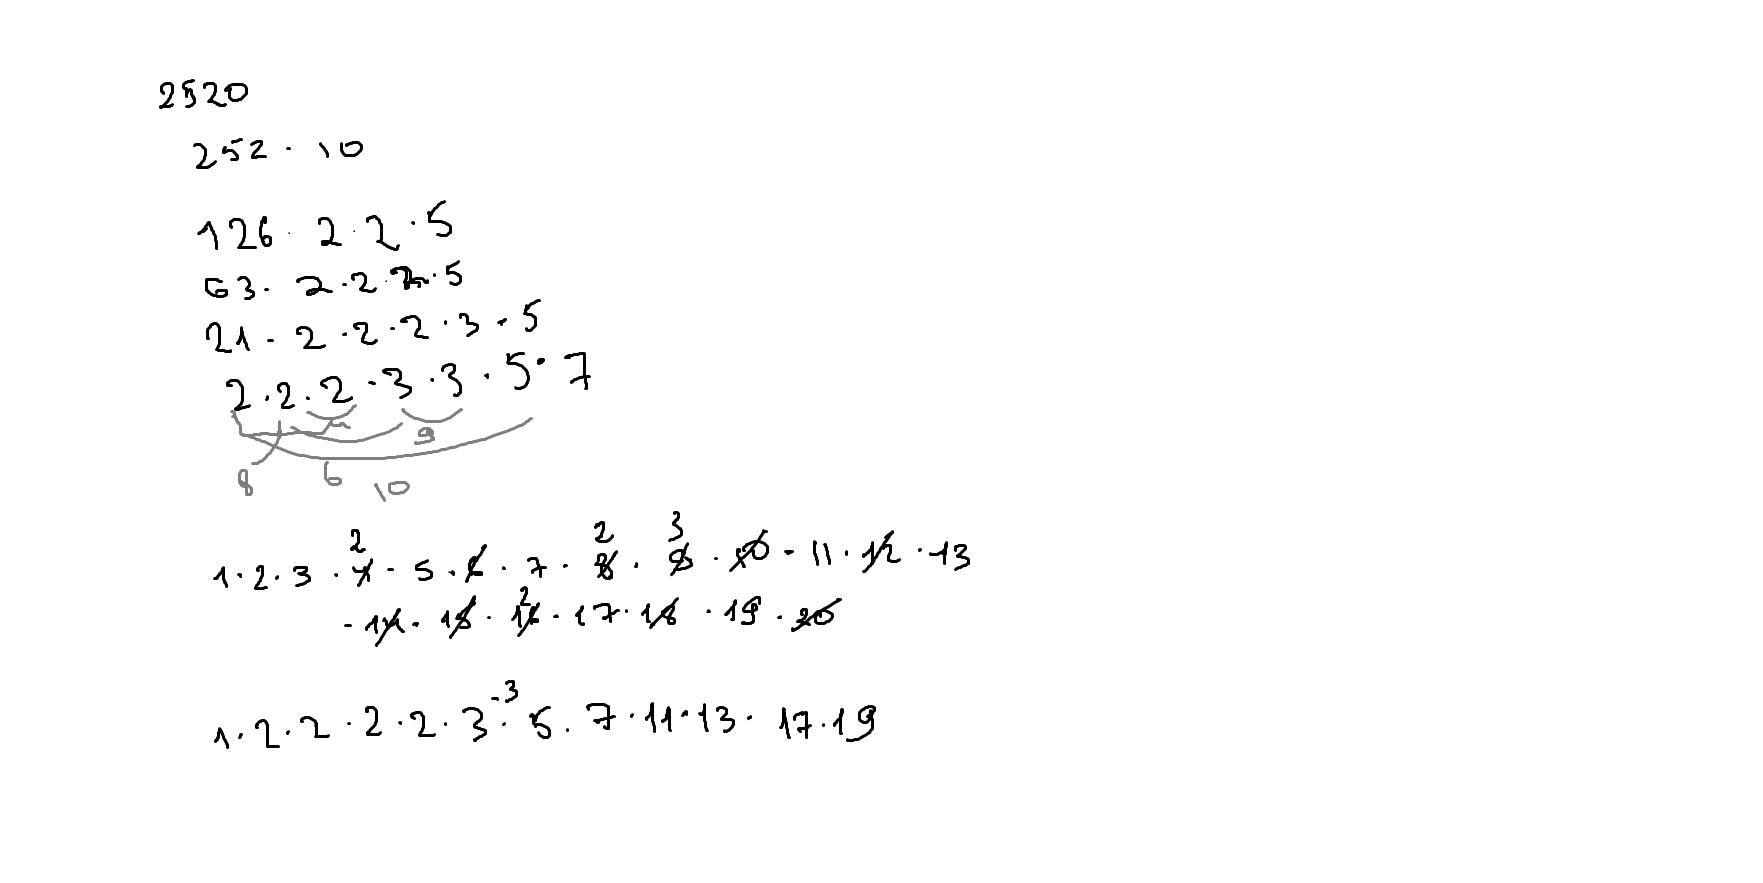 2520
252 · 10
126 · 2 · 2 · 5
63 · 2 · 2 · 2 · 5
21 · 2 · 2 · 2 · 3 · 5
2 · 2 · 2 · 3 · 3 · 5 · 7
4 9
8 6 10
2 2 3
1 · 2 · 3 · 4 · 5 · 6 · 7 · 8 · 9 · 10 · 11 · 12 · 13
2
· 14 · 15 · 16 · 17 · 18 · 19 · 20
· 3
1 · 2 · 2 · 2 · 2 · 3 · 5 · 7 · 11 · 13 · 17 · 19